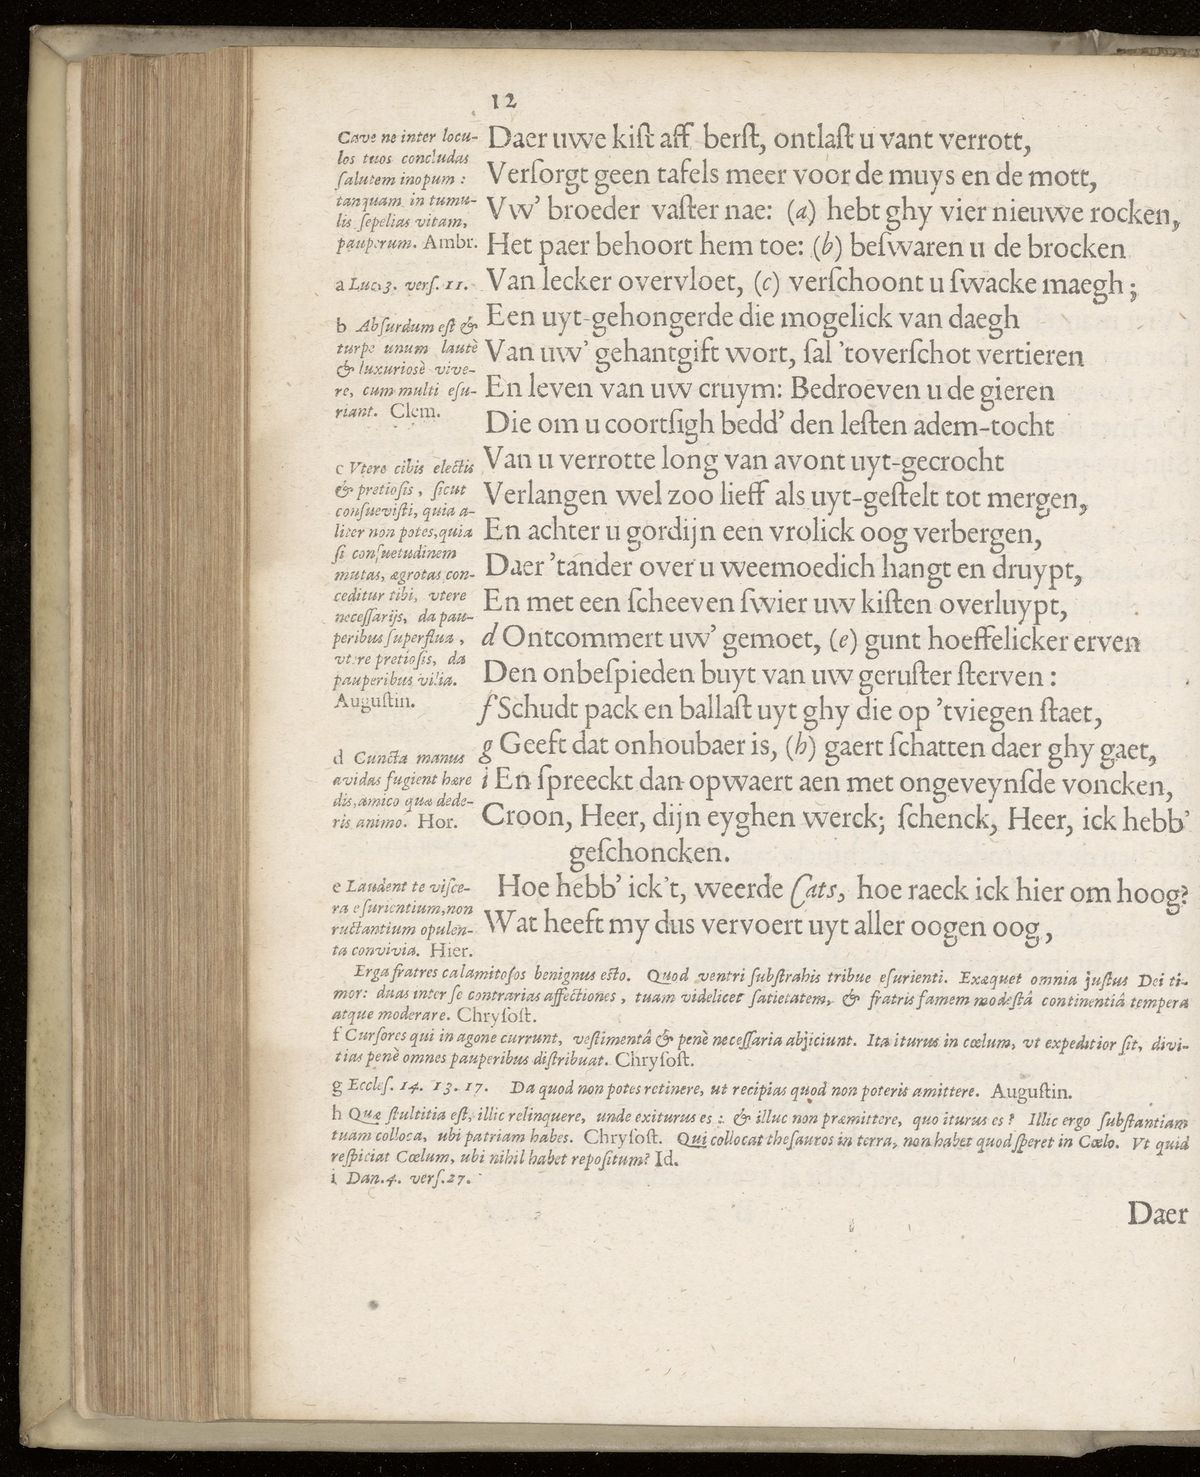 12
Cave ne inter locu-
los tuos concludas
ſalutem inopum :
tanquam in tumu-
lis ſepelias vitam,
pauperum. Ambr.
a Luc. 3. verſ. 11.
b Abſurdum eſt &
turpe unum lautè
& luxuriosè vive-
re, cum multi eſu-
riant. Clem.
c Vtere cibis electis
& pretioſis, ſicut
conſueviſti, quia a-
liter non potes, quia
ſi conſuetudinem
mutas, ægrotas con-
ceditur tibi, vtere
neceſſarijs, da pau-
peribus ſuperflua,
vtere pretioſis, da
pauperibus vilia.
Auguſtin.
d Cuncta manus
avidas fugient hære
dis, amico quæ dede-
ris animo. Hor.
e Laudent te viſce-
ra eſurientium, non
ructantium opulen-
ta convivia. Hier.
Daer uwe kiſt aff berſt, ontlaſt u vant verrott,
Verſorgt geen tafels meer voor de muys en de mott,
Vw’ broeder vaſter nae: (a) hebt ghy vier nieuwe rocken,
Het paer behoort hem toe: (b) beſwaren u de brocken
Van lecker overvloet, (c) verſchoont u ſwacke maegh ;
Een uyt-gehongerde die mogelick van daegh
Van uw’ gehantgift wort, ſal ’toverſchot vertieren
En leven van uw cruym: Bedroeven u de gieren
Die om u coortſigh bedd’ den leſten adem-tocht
Van u verrotte long van avont uyt-gecrocht
Verlangen wel zoo lieff als uyt-geſtelt tot mergen,
En achter u gordijn een vrolick oog verbergen,
Daer ’tander over u weemoedich hangt en druypt,
En met een ſcheeven ſwier uw kiſten overluypt,
d Ontcommert uw’ gemoet, (e) gunt hoeffelicker erven
Den onbeſpieden buyt van uw geruſter ſterven :
f Schudt pack en ballaſt uyt ghy die op ’tviegen ſtaet,
g Geeft dat onhoubaer is, (h) gaert ſchatten daer ghy gaet,
i En ſpreeckt dan opwaert aen met ongeveynſde voncken,
Croon, Heer, dijn eyghen werck; ſchenck, Heer, ick hebb’
geſchoncken.
Hoe hebb’ ick’t, weerde Cats, hoe raeck ick hier om hoog?
Wat heeft my dus vervoert uyt aller oogen oog,
Erga fratres calamitoſos benignus eſto. Quod ventri ſubſtrahis tribue eſurienti. Exæquet omnia juſtus Dei ti-
mor: duas inter ſe contrarias affectiones, tuam videlicet ſatietatem, & fratris famem modeſtâ continentiâ tempera
atque moderare. Chryſoſt.
f Curſores qui in agone currunt, veſtimentâ & penè neceſſaria abjiciunt. Ita iturus in cœlum, vt expeditior ſit, divi-
tias penè omnes pauperibus diſtribuat. Chryſoſt.
g Eccleſ. 14. 13. 17. Da quod non potes retinere, ut recipias quod non poteris amittere. Auguſtin.
h Quæ ſtultitia eſt, illic relinquere, unde exiturus es : & illuc non præmittere, quo iturus es ? Illic ergo ſubſtantiam
tuam colloca, ubi patriam habes. Chryſoſt. Qui collocat theſauros in terra, non habet quod ſperet in Cœlo. Vt quid
reſpiciat Cœlum, ubi nihil habet repoſitum? Id.
i Dan. 4. verſ. 27.
Daer